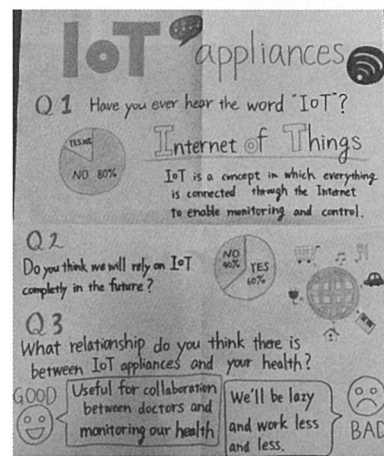 IoT appliances
Q1 Have you ever hear the word "IoT"?
NO 80%
Internet of Things
IoT is a concept in which everything
is connected through the Internet
to enable monitoring and control.
Q2
Do you think we will rely on IoT
completly in the future?
NO
40%
YES
60%
Q3
What relationship do you think there is
between IoT appliances and your health?
GOOD
Useful for collaboration
between doctors and
monitoring our health
We'll be lazy
and work less
and less.
BAD